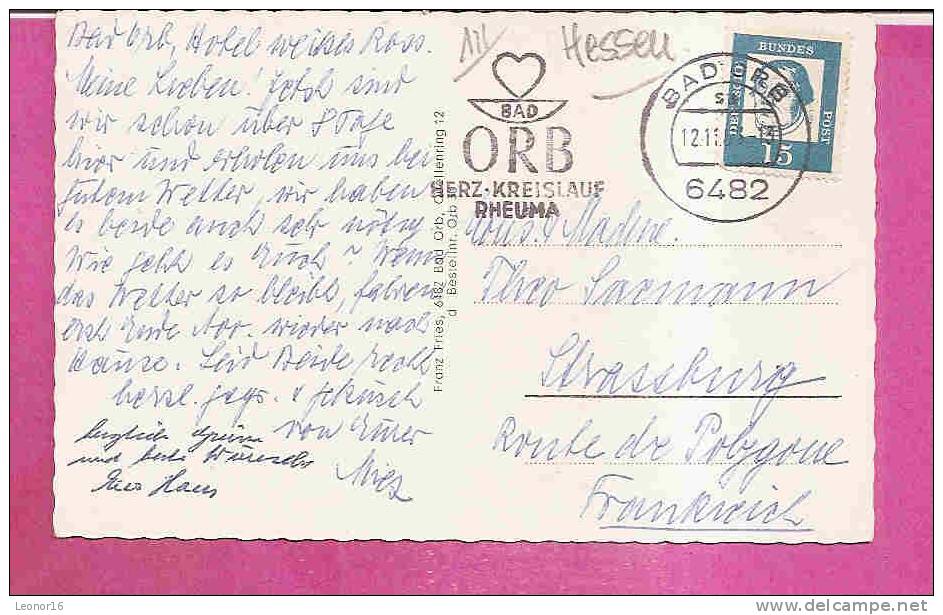 Bad Orb, Hotel weißes Ross.
Meine Lieben! Jetzt sind
wir schon über 8 Tage
hier und erholen uns bei
gutem Wetter, wir haben
es beide auch sehr nötig
Wie geht es Euch? Wenn
das Wetter so bleibt, fahren
erst Ende Nov. wieder nach
Hause. Seid Beide recht
herzl. gegr. u geküsst
von Eurer
Miez
herzliche Grüsse
und beste Wünsche
Euer Hans
Franz Fries, 6482 Bad Orb, Quellenring 12
Bestellnr. Orb
Hessen
BAD
ORB
HERZ-KREISLAUF
RHEUMA
BAD ORB
12.11.
6482
BUNDES
POST
DEUTSCHE
15
Mons. u Madme.
Theo Sacmann
Strassburg
Route de Polygone
Frankreich
Leonor16
www.delcampe.net